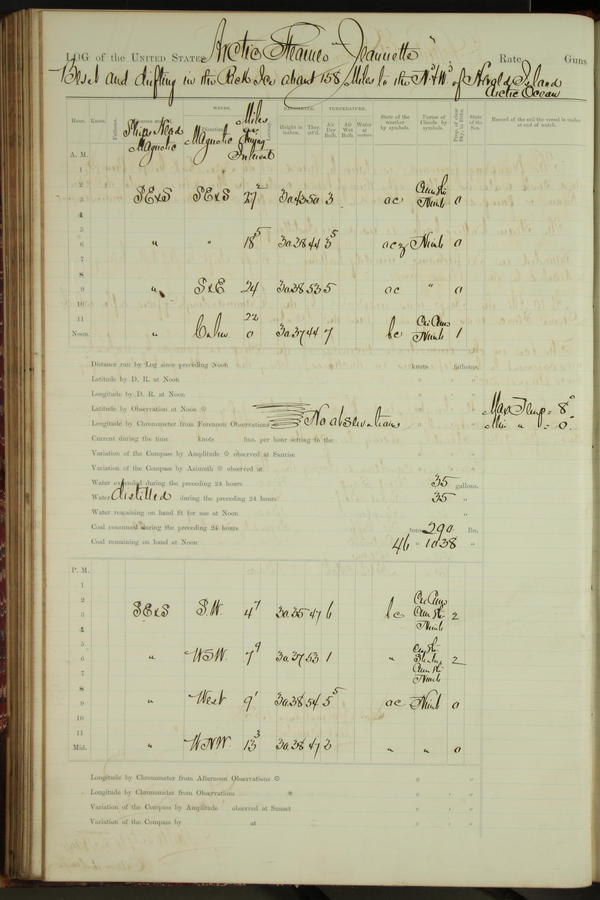 LOG of the UNITED STATES Arctic Steamer "Jeannette" Rate Guns
Beset and drifting in the Pack Ice about 158 Miles to the N & W of Herald Island
Arctic Ocean
WINDS. BAROMETER. TEMPERATURE.
Hour. Knots. Fathoms. Ship's Head Magnetic Magnetic Miles per Interval Leeway. Height in inches. Ther. att'd. Air Dry Bulb. Air Wet Bulb. Water at surface. State of the weather by symbols. Forms of Clouds by symbols. State of the Sea. Record of the sail the vessel is under at end of watch.
A. M.
1
2
3 SE x S SE x S 27 2 30.43 50 3 oc Cum St. Nimb 0
4
5
6 " " 18 5 30.38 44 3 5 Nimb 0
7
8
9 " S x E 24 30.38 53 5 oc " 0
10
11
Noon. " Calm 22 0 30.37 44 7 bc Cir Cum Nimb 1
Distance run by Log since preceding Noon knots fathoms.
Latitude by D. R. at Noon
Longitude by D. R. at Noon
Latitude by Observation at Noon
Longitude by Chronometer from Forenoon Observations No observations
Max Temp = 8°
Min " = 0°
Current during the time knots fms. per hour setting to the
Variation of the Compass by Amplitude observed at Sunrise
Variation of the Compass by Azimuth observed at
Water expended during the preceding 24 hours 35 gallons.
Water distilled during the preceding 24 hours 35 "
Water remaining on hand fit for use at Noon "
Coal consumed during the preceding 24 hours tons 290 lbs.
Coal remaining on hand at Noon 46 " 1038 "
P. M.
1
2
3 SE x S S.W. 4 7 30.35 47 6 bc Cir Cum Cum St. Nimb 2
4
5
6 " WSW. 7 9 30.37 53 1 " Cum St. Nimb 2
7
8
9 " West 9 1 30.38 54 5 5 oc Nimb 0
10
11
Mid. " WNW. 13 3 30.38 47 2 " " 0
Longitude by Chronometer from Afternoon Observations
Longitude by Chronometer from Observations
Variation of the Compass by Amplitude observed at Sunset
Variation of the Compass by at